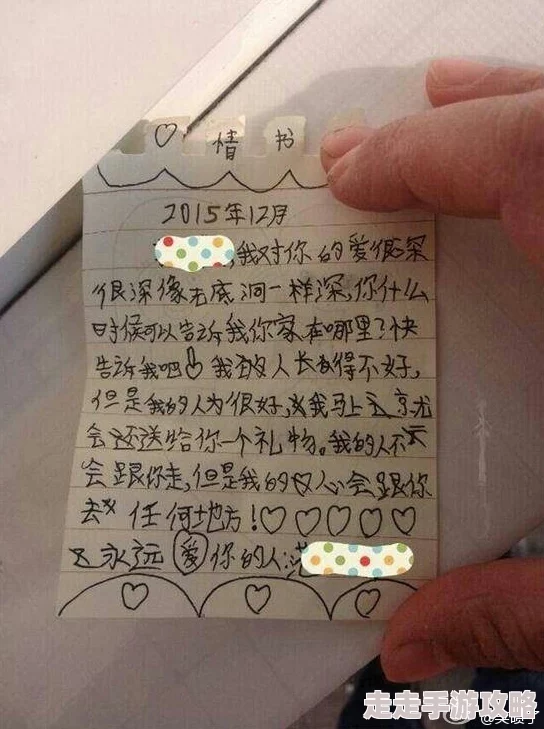 ♡ 情书
2015年12月
,我对你的爱很深
很深像无底洞一样深,你什么
时候可以告诉我你家在哪里?快
告诉我吧 我的人长得不好,
但是我的人为很好,我马上
会还送给你一个礼物。我的人不
会跟你走,但是我的心会跟你
去 任何地方!♡♡♡♡♡
永远爱你的人:
走走手游攻略